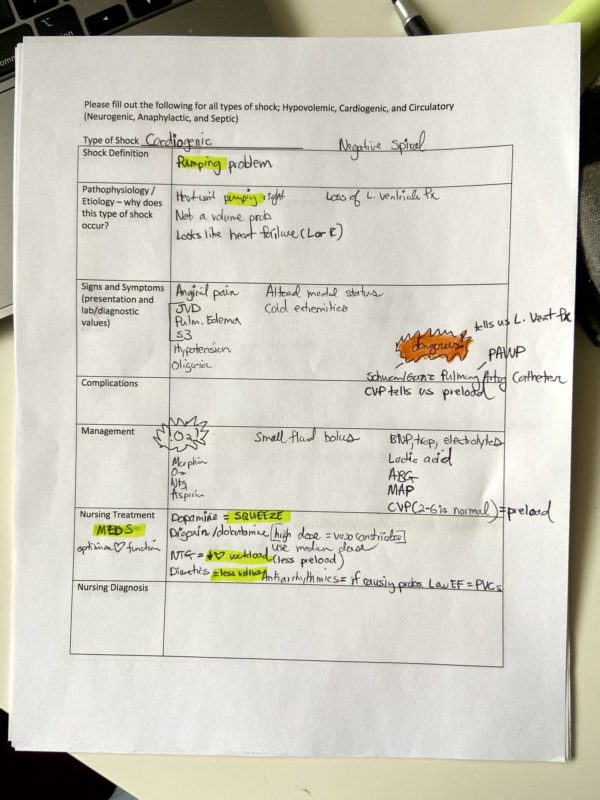 Please fill out the following for all types of shock; Hypovolemic, Cardiogenic, and Circulatory
(Neurogenic, Anaphylactic, and Septic)
Type of Shock Cardiogenic
Negative Spiral
Shock Definition
Pumping problem
Pathophysiology /
Etiology – why does
this type of shock
occur?
Heart isn't pumping right
Loss of L. ventricle fx
Not a volume prob
Looks like heart failure (L or R)
Signs and Symptoms
(presentation and
lab/diagnostic
values)
Anginal pain
Altered mental status
JVD
Cold extremities
Pulm. Edema
S3
Hypotension
Oliguria
tells us L. Vent fx
dangerous!
PAWP
Schwan/Ganz Pulmonary Artery Catheter
CVP tells us preload
Complications
Management
O2!
Small fluid bolus
BNP, trop, electrolytes
Morphin
Lactic acid
O2
ABG
Ntg
MAP
Aspirin
CVP (2-6 is normal) = preload
Nursing Treatment
MEDS
optimize ♡ function
Dopamine = SQUEEZE
Digoxin/dobutamine [high dose = vasoconstricts]
use medium dose
NTG = ↓♡ workload (less preload)
Diuretics = less volume
Antiarrhythmics = if causing probs Low EF = PVCs
Nursing Diagnosis